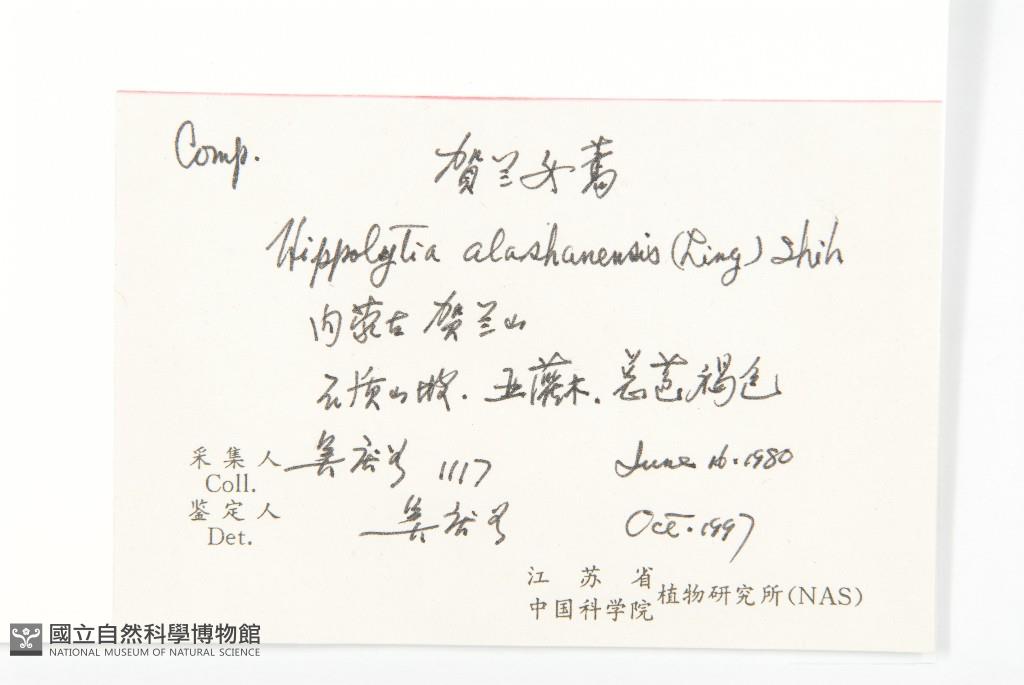 Comp.
贺兰女蒿
Hippolytia alashanensis (Ling) Shih
内蒙古 贺兰山
石质山坡. 亚灌木. 总苞褐色
采集人
Coll.
吴 1117 June 16. 1980
鉴定人
Det.
吴 Oct. 1997
江苏省
中国科学院 植物研究所(NAS)
國立自然科學博物館
NATIONAL MUSEUM OF NATURAL SCIENCE